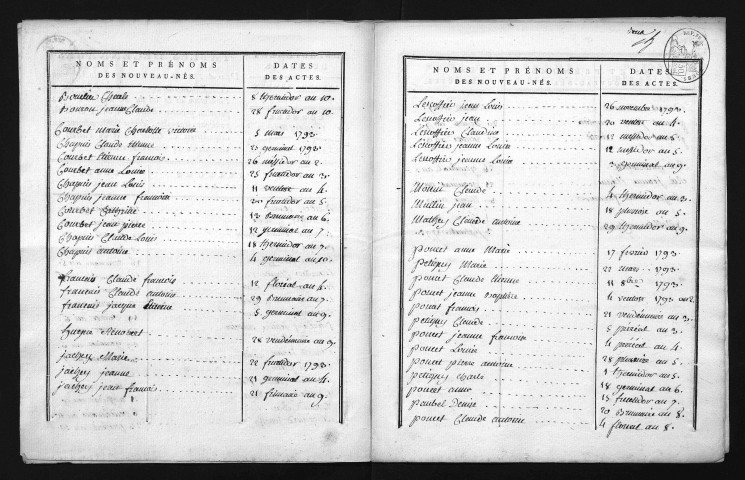 NOMS ET PRÉNOMS
DES NOUVEAU-NÉS.
DATES
DES ACTES.
Charle 8 thermidor an 10.
jeanne Claude 28 fructidor an 10.
Courbet Marie Charlotte victoire 5 mars 1793
Chapuis Claude Etienne 22 germinal 1793
Courbet Etienne francois 26 messidor an 2.
Courbet anne Louise 25 fructidor an 3.
Chapuis jean Louis 11 ventose an 4.
Chapuis jeanne francoise 20 fructidor an 5.
Courbet 13 Brumaire an 6.
Courbet jean pierre 12 germinal an 7.
Chapuis Claude Louis 18 thermidor an 7.
Chapuis antoine 4 germinal an 10.
francois Claude francois 12 floreal an 4.
francois Claude antoine 29 Brumaire an 7.
francois jacque Etienne 5 germinal an 9.
28 vendemiaire an 9.
jacheys Marie 22 fructidor 1793
jacheys jeanne 23 germinal an 4.
jacheys jean francois 21 frimaire an 9.
NOMS ET PRÉNOMS
DES NOUVEAU-NÉS.
DATES
DES ACTES.
jean Louis 26 novembre 1793.
jean 20 ventose an 4.
Claudine 12 messidor an 5.
jeanne Louise 12 messidor an 5.
jeanne Louise 3 germinal an 9.
Claude 4 thermidor an 3.
jean 18 pluviose an 5.
Mathey Claude antoine 29 thermidor an 9.
poucet anne Marie 17 fevrier 1793
petigney Marie 22 mars 1793.
poucet Claude Etienne 11 8bre 1793
poucet jeanne baptiste 4 ventose 1793 an 2
poucet francois 21 vendemiaire an 3.
petigney Claude 5 prairial an 3.
poucet jeanne francoise 4 prairial an 4.
poucet Louise 28 pluviose an 5.
poucet pierre antoine 1 thermidor an 5.
petigney Charle 18 germinal an 6.
poucet anne 15 fructidor an 7.
Denise 20 Brumaire an 8.
poucet Claude antoine 4 floreal an 8.